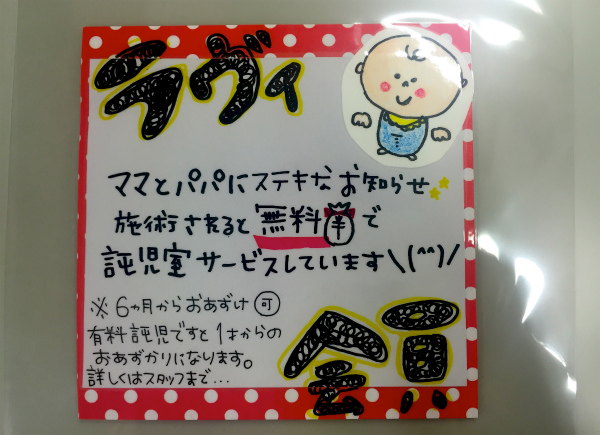 ラヴィ
ママとパパにステキなお知らせ
施術されると無料¥で
託児室サービスしています\(^^)/
※6ヵ月からおあずけ可
有料託児ですと1才からの
おあずかりになります。
詳しくはスタッフまで...
会員